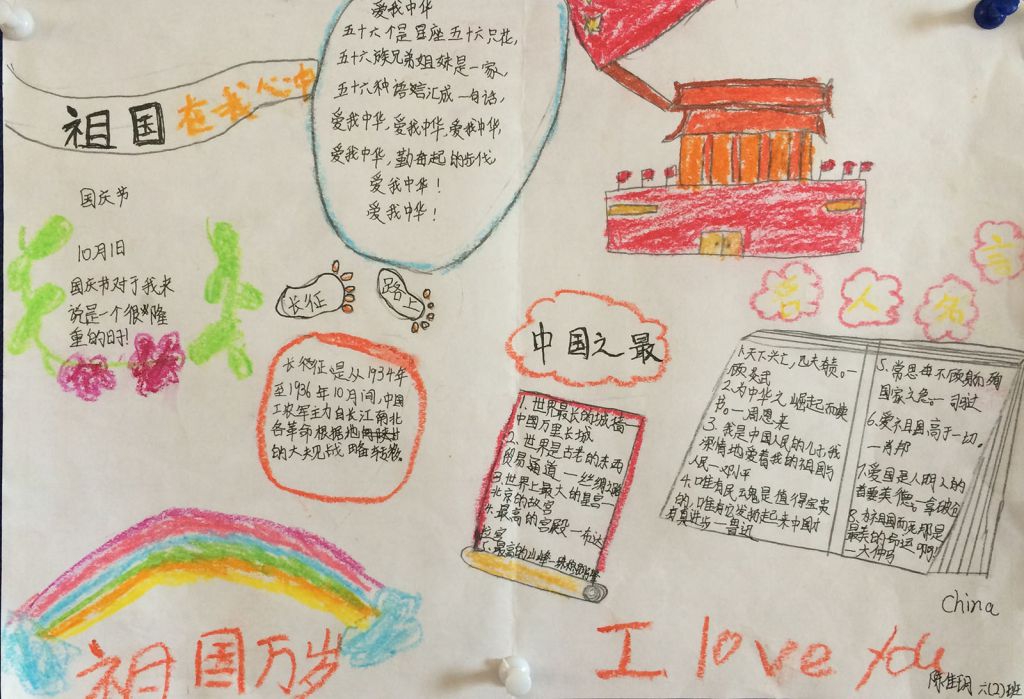 祖国在我心中
爱我中华
五十六个星座五十六只花,
五十六族兄弟姐妹是一家,
五十六种语言汇成一句话,
爱我中华,爱我中华,爱我中华,
爱我中华,勤奋起的步伐
爱我中华!
爱我中华!
国庆节
10月1日
国庆节对于我来
说是一个很隆
重的日时!
长征
路上
长征是从1934年
至1936年10月间,中国
工农军主力自长江南北
各革命根据地
的大规战略转移。
中国之最
1.世界最长的城墙一
中国万里长城
2.世界是古老的东西
贸易通道一丝绸之路
3.世界上最大的皇宫一
北京的故宫
4.最高的宫殿一布达
拉宫
5.最高的山峰一珠穆朗玛峰
名人名言
1.天下兴亡,匹夫有责。一
顾炎武
2.为中华之崛起而读
书。一周恩来
3.我是中国人民的儿子我
深情地爱着我的祖国与
人民一邓小平
4.唯有民魂是值得宝贵
的,唯有它发扬起来中国才
有真进步一鲁迅
5.常思奋不顾身而殉
国家之急。一司马迁
6.爱祖国高于一切。
一肖邦
7.爱国是人的
首要美德。一拿破仑
8.为祖国而死那是
最美的命运啊!
一大仲马
China
祖国万岁
I love you
六(2)班